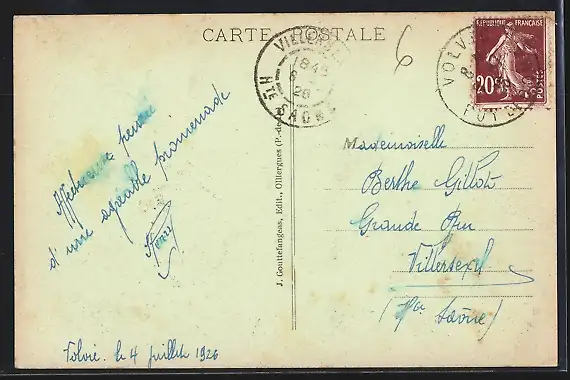 CARTE POSTALE
VILLERSEXEL
18 45
6
26
HTE SAONE
6
VOLVIC
PUY DE
REPUBLIQUE FRANÇAISE
20c
POSTES
Affectueuse pensée
d'une agréable promenade
J. Gouttefangeas, Edit., Olliergues (P.-de-
Mademoiselle
Berthe Gillot
Grande Rue
Villersexel
(Hte Saône)
Volvic le 4 juillet 1926